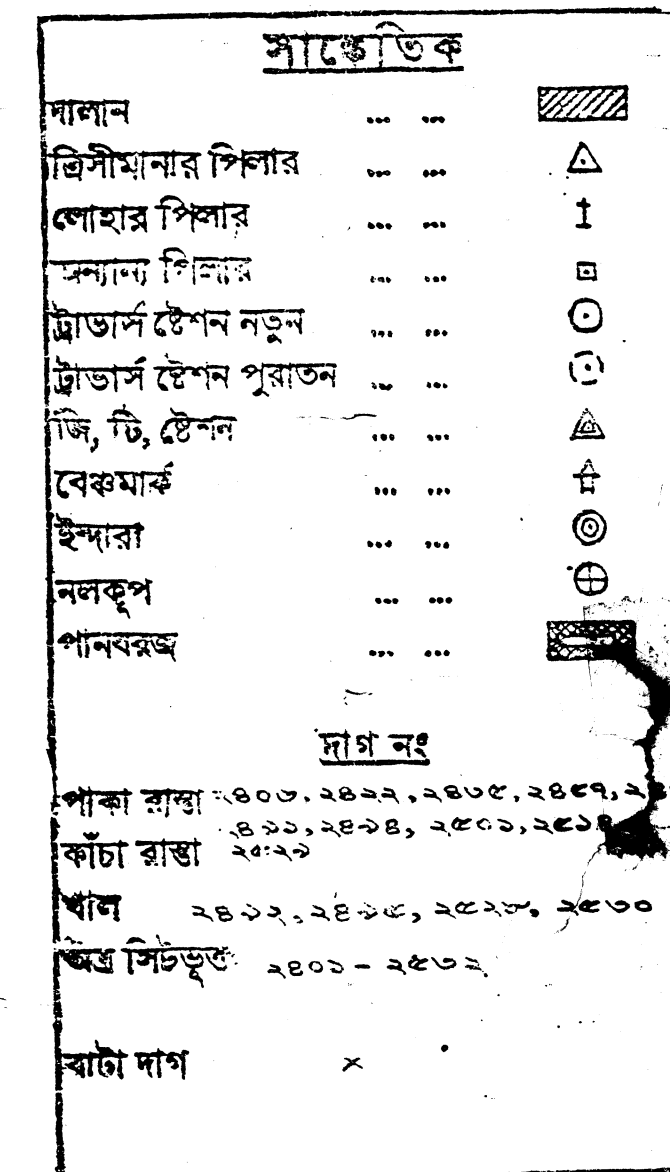 সাঙ্কেতিক
দালান ... ...
ত্রিসীমানার পিলার ... ...
লোহার পিলার ... ...
অন্যান্য পিলার ... ...
ট্রাভার্স ষ্টেশন নতুন ... ...
ট্রাভার্স ষ্টেশন পুরাতন ... ...
জি, টি, ষ্টেশন ... ...
বেঞ্চমার্ক ... ...
ইন্দারা ... ...
নলকূপ ... ...
পানবরজ ... ...
দাগ নং
পাকা রাস্তা ২৪০৬, ২৪২২, ২৪৩৫,
২৫০১,
কাঁচা রাস্তা
খাল ২৪১২, ২৫৩০
অত্র সিটভূক্ত ২৪০১ - ২৫৩২
বাটা দাগ ×